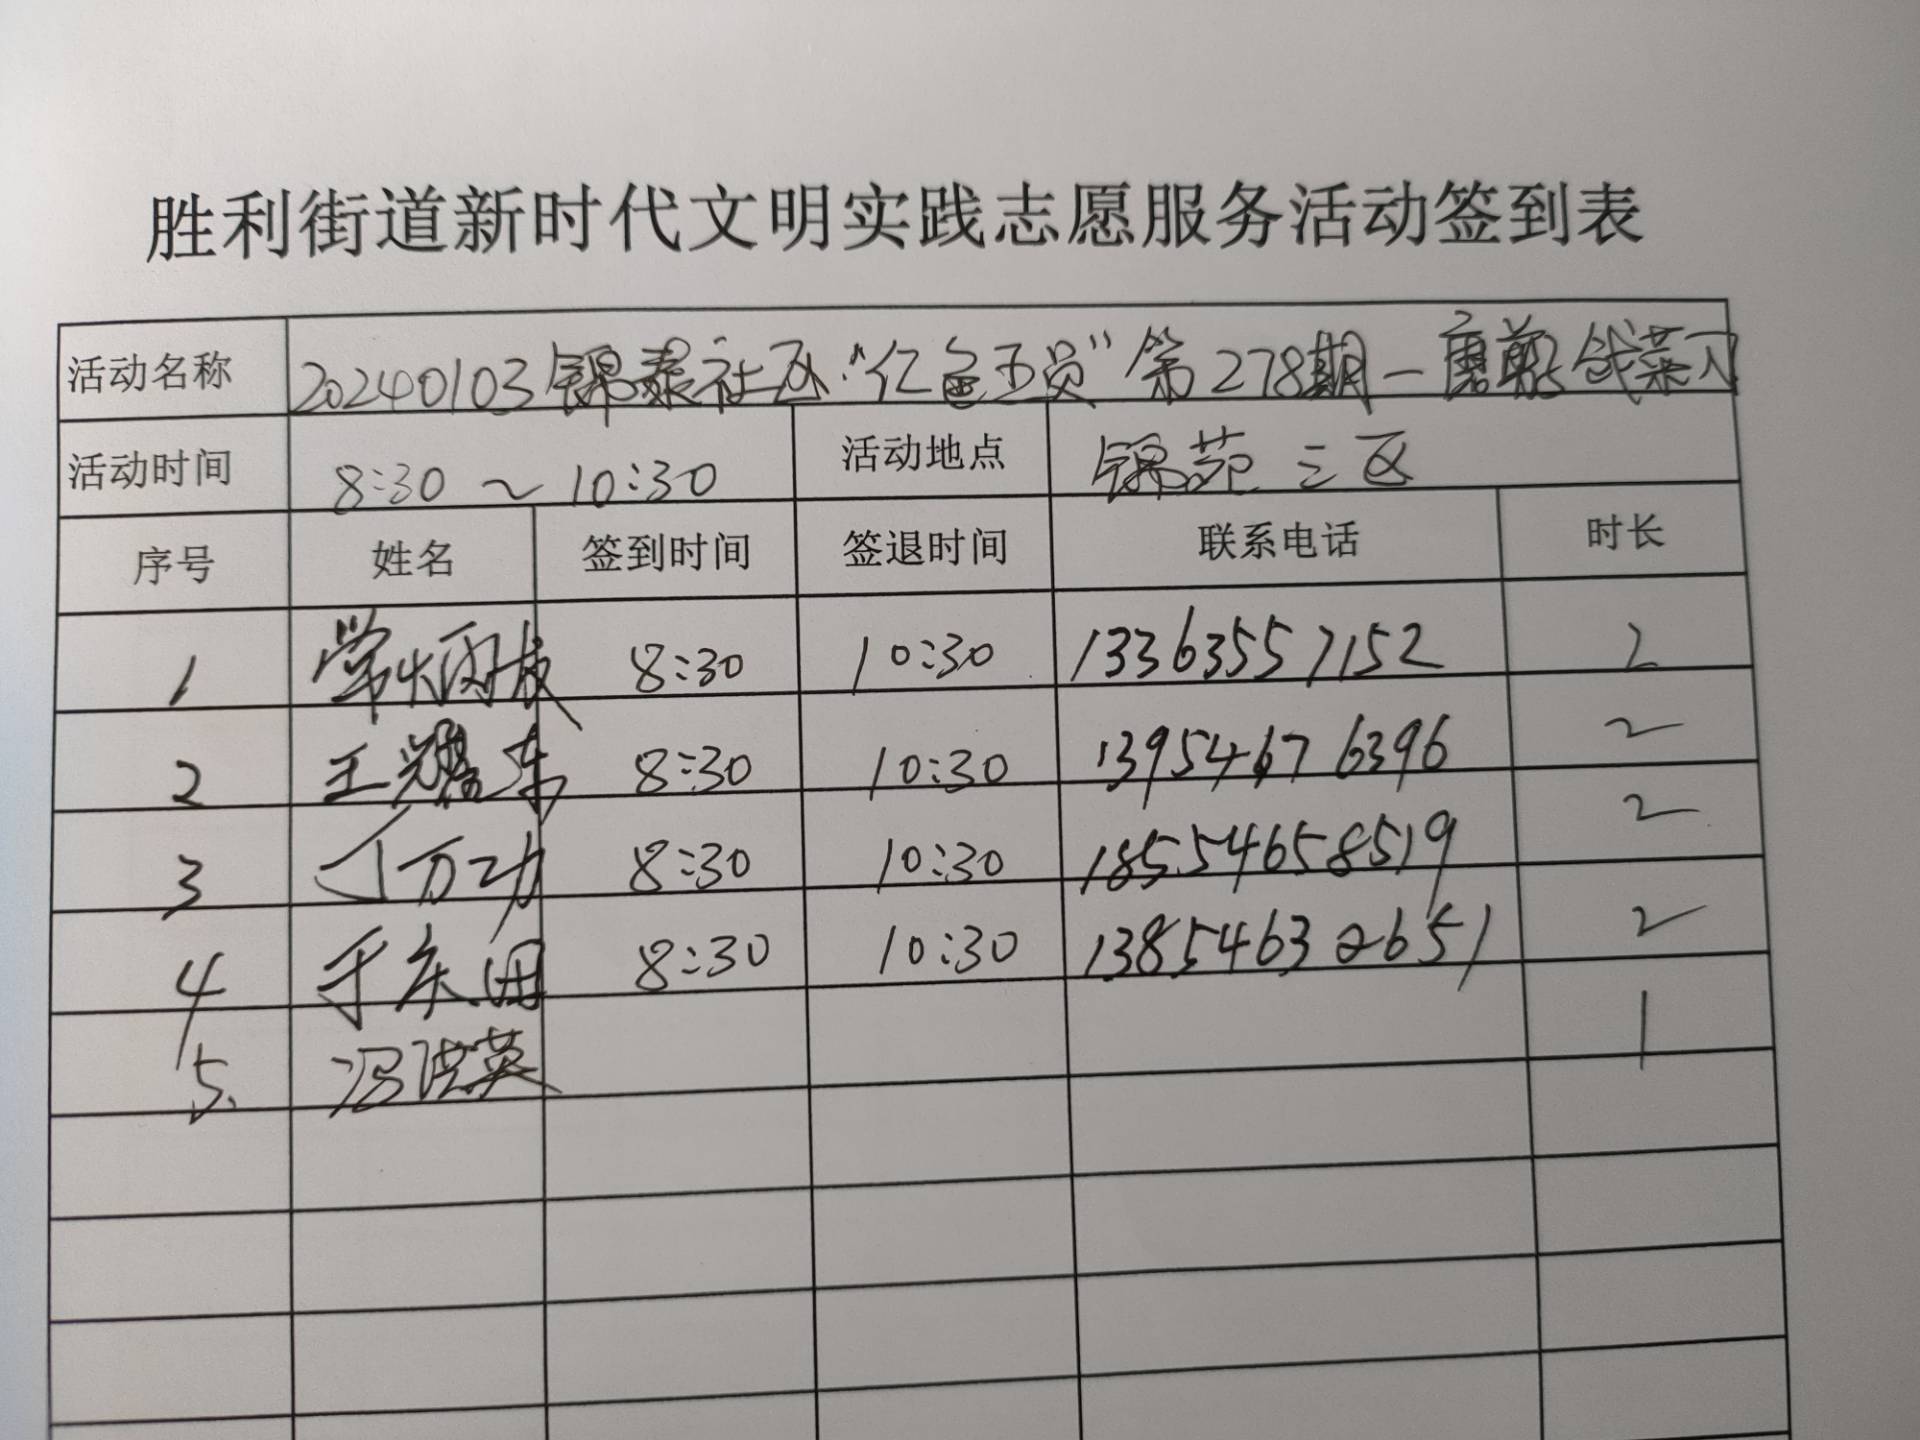 胜利街道新时代文明实践志愿服务活动签到表
活动名称 20240103锦泰社区"红色五员"第278期—磨剪戗菜刀
活动时间 8:30～10:30 活动地点 锦苑三区
序号 姓名 签到时间 签退时间 联系电话 时长
1 常炳成 8:30 10:30 13363557152 2
2 王耀东 8:30 10:30 13954676396 2
3 丁万功 8:30 10:30 18554658519 2
4 于庆田 8:30 10:30 13854632651 2
5、 冯洪英 1